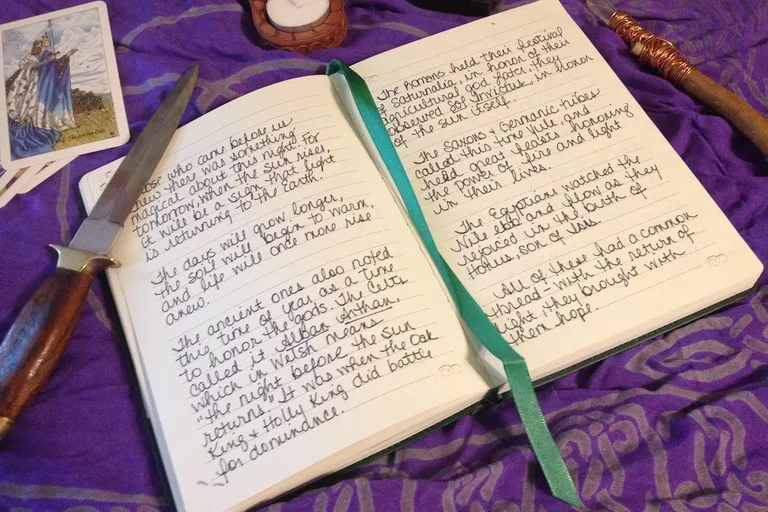 those who came before us
knew there was something
magical about this night. For
tomorrow, when the sun rises,
it will be a sign that light
is returning to the earth.
The days will grow longer,
the soil will begin to warm,
and life will once more rise
anew.
The ancient ones also noted
this time of year as a time
to honor the gods. The Celts
called it Alban Arthan,
which in Welsh means
"the night before the sun
returns." It was when the Oak
King & Holly King did battle
for domindnce.
The Romans held their festival
of Saturnalia, in honor of their
agricultural god. Later, they
observed Sol Invictus, in honor
of the sun itself.
The Saxons & Germanic tribes
called this time Yule, and
held great feasts honoring
the power of fire and light
in their lives.
The Egyptians watched the
Nile ebb and flow as they
rejoiced in the birth of
Horus, son of Isis.
All of these had a common
thread - with the return of
light, they brought with
them hope.